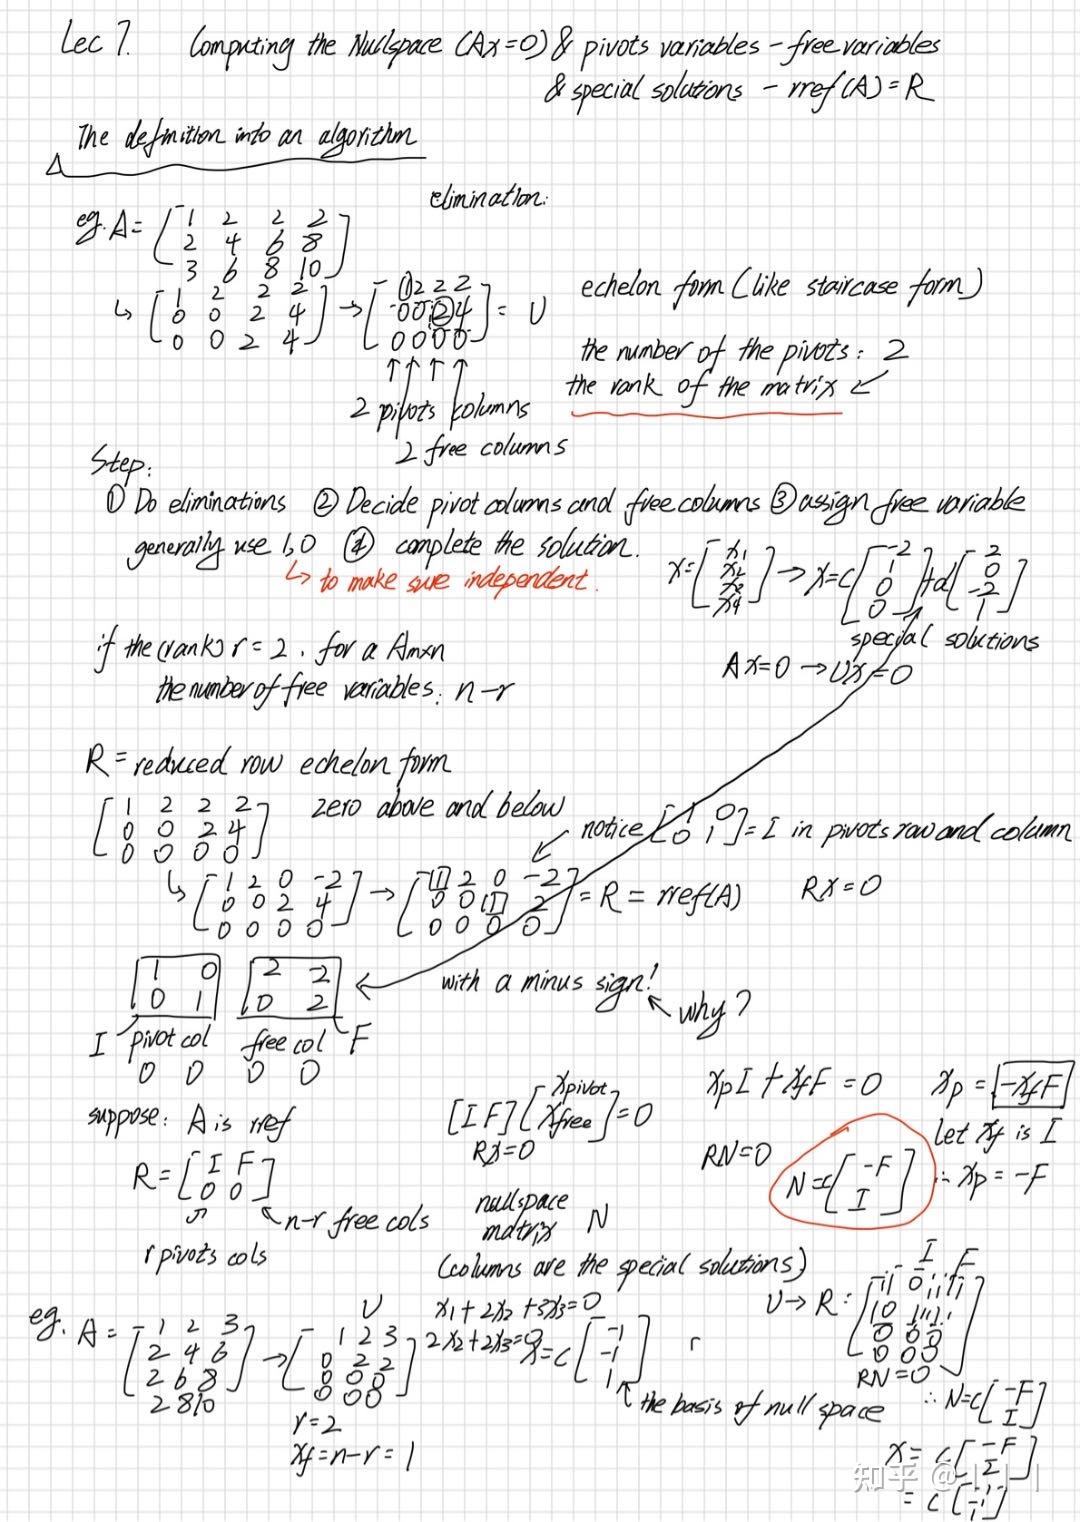 Lec 7. Computing the Nullspace (Ax=0) & pivots variables - free variables
& special solutions - rref(A)=R
The definition into an algorithm
elimination:
eg. A= [1 2 2 2
2 4 6 8
3 6 8 10]
↳ [1 2 2 2
0 0 2 4
0 0 2 4] → [① 2 2 2
0 0 ② 4
0 0 0 0] = U
echelon form (like staircase form)
the number of the pivots: 2
the rank of the matrix ↙
↑ ↑ ↑ ↑
2 pivots columns
2 free columns
Step:
① Do eliminations ② Decide pivot columns and free columns ③ assign free variable
generally use 1,0 ④ complete the solution.
↳ to make sure independent.
x= [x1
x2
x3
x4] → x=c [-2
1
0
0] +d [2
0
-2
1]
special solutions
Ax=0 → Ux=0
if the (rank) r=2. for a Amxn
the number of free variables: n-r
R = reduced row echelon form
[1 2 2 2
0 0 2 4
0 0 0 0]
zero above and below
notice [1 0
0 1] = I in pivots row and column
↳ [1 2 0 -2
0 0 2 4
0 0 0 0] → [1 2 0 -2
0 0 1 2
0 0 0 0] = R = rref(A)
RX=0
[1 0
0 1] [2 2
0 2] ←
with a minus sign! ↖ why?
I pivot col free col F
0 0 0 0
suppose: A is rref
[I F] [xpivot
xfree] =0
RX=0
xpI + xfF = 0 xp = -xfF
let xf is I
∴ xp = -F
RN=0
N=c [-F
I]
R= [I F
0 0]
r pivots cols
n-r free cols
nullspace
matrix N
(columns are the special solutions)
eg. A= [1 2 3
2 4 6
2 6 8
2 8 10] → U [1 2 3
0 2 2
0 0 0
0 0 0]
r=2
xf=n-r=1
x1+2x2+3x3=0
2x2+2x3=0
x=c [-1
-1
1]
the basis of null space
U→R:
I F
RN=0
∴ N=c [-F
I]
x= c [-F
= c
知乎